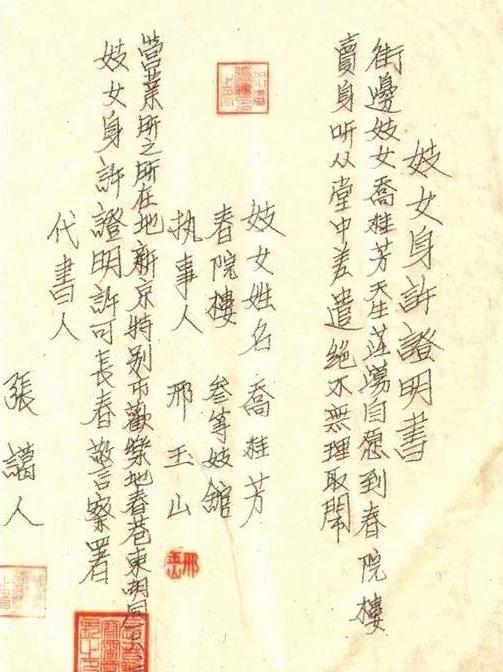 妓女身許證明書
街邊妓女喬桂芳天生淫蕩自愿到春院樓
賣身听从堂中差遣絕不無理取鬧
妓女姓名 喬桂芳
春院樓 叁等妓舘
执事人 邢玉山
營業所之所在地新京特别市歡樂地春巷東胡同
妓女身許證明許可長春警察署
代書人
張
人